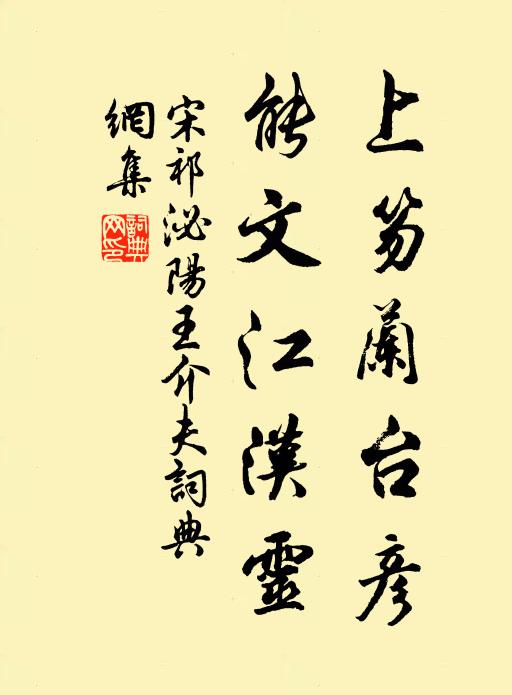 上笏蘭台彥
能文江漢靈
宋祁泌陽王介夫詞典
網集
詞典
网印